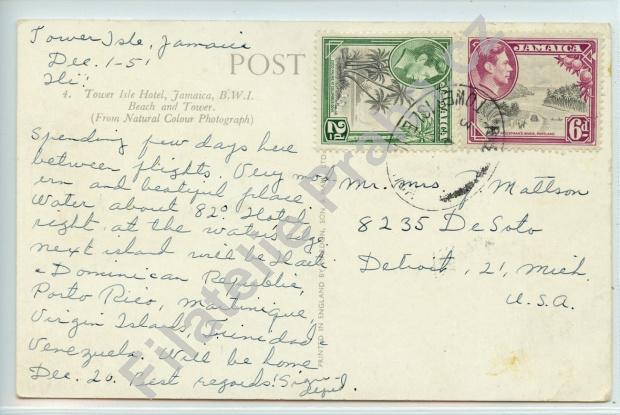 Tower Isle, Jamaica
Dec. 1-51
Hi!
POST
4. Tower Isle Hotel, Jamaica, B.W.I.
Beach and Tower.
(From Natural Colour Photograph)
Spending few days here
between flights. Very mod
ern and beatiful place
Water about 82° Hotel
right at the waters edge
next island will be Haiti
& Dominican Republic,
Porto Rico, Martinique
Virgin Island, Trinidad &
Venezuela. Will be home
Dec. 20. Best regards!
JAMAICA
2D
JAMAICA
6d
TOWER ISLE
PRINTED IN ENGLAND BY
Mr. Mrs. J. Mattson
8235 DeSoto
Detroit, 21, Mich.
U.S.A.
Filatelie Praha.cz